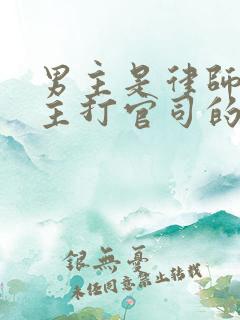 男主是律師
主打官司的
銀無憂
未經同意禁止转載